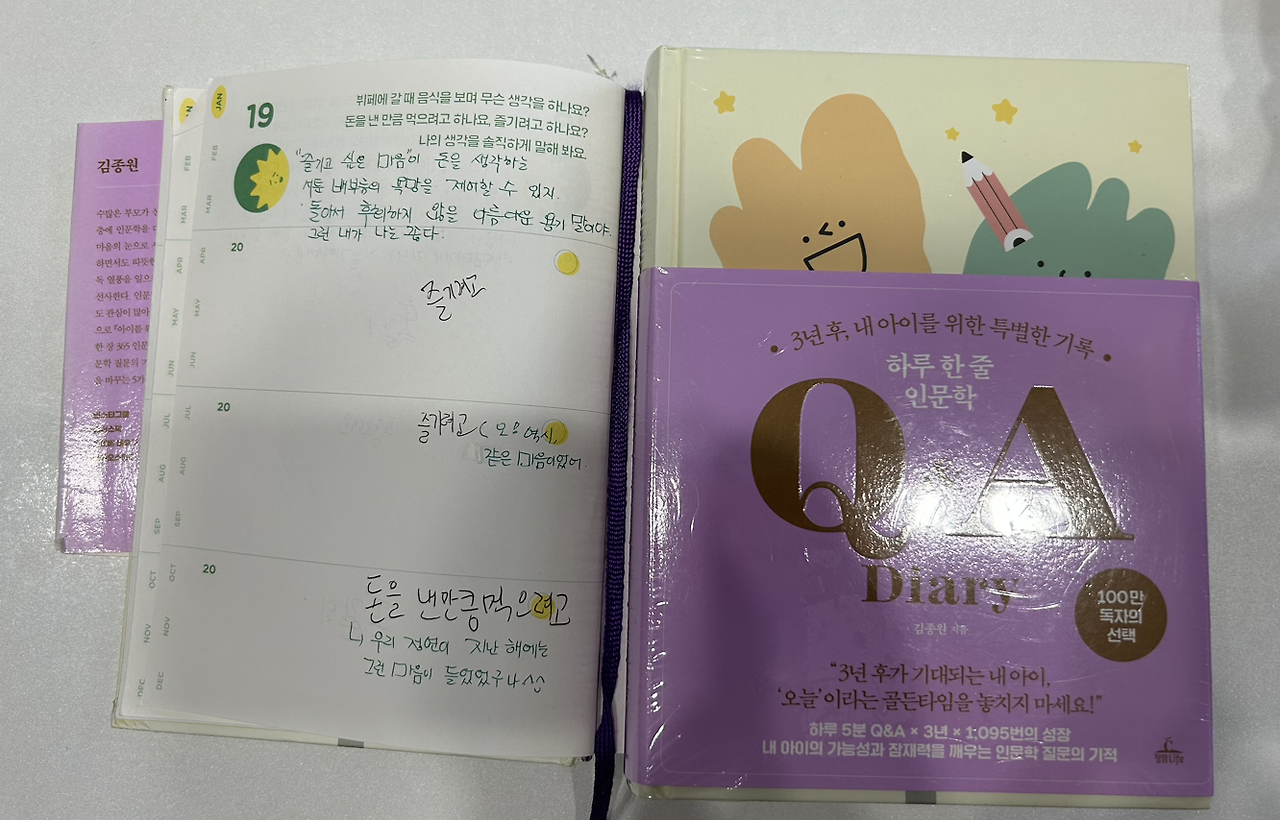 김종원
수많은 부모가
중에 인문학을
마음의 눈으로
하면서도 따뜻한
독 열풍을 일으
선사한다. 인문
도 관심이 많아
으로 『아이를 위
한 장 365 인문
문학 질문의
을 바꾸는 5가
JAN
FEB
MAR
APR
MAY
JUN
JUL
AUG
SEP
OCT
NOV
DEC
JAN
FEB
MAR
APR
MAY
JUN
JUL
AUG
SEP
OCT
NOV
DEC
19
뷔페에 갈 때 음식을 보며 무슨 생각을 하나요?
돈을 낸 만큼 먹으려고 하나요, 즐기려고 하나요?
나의 생각을 솔직하게 말해 봐요.
"즐기고 싶은 마음"이 돈을 생각하는
배부름의 욕망을 제어할 수 있지.
돌아서 후회하지 않을 아름다운 용기 말이야.
그런 내가 나는 좋다.
20
즐기려고
20
즐기려고 (오늘 역시,
같은 마음이었어.
20
돈을 낸만큼먹으려고
우리 지난 해에는
그런 마음이 들었었구나 ^^
3년 후, 내 아이를 위한 특별한 기록
하루 한 줄
인문학
Q&A
Diary
김종원 지음
100만
독자의
선택
“3년 후가 기대되는 내 아이,
‘오늘’이라는 골든타임을 놓치지 마세요!”
하루 5분 Q&A × 3년 × 1,095번의 성장
내 아이의 가능성과 잠재력을 깨우는 인문학 질문의 기적
청림Life